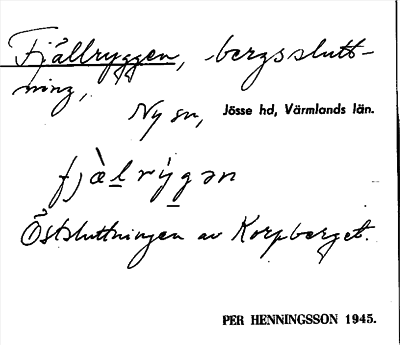 Fjällryggen, bergsslutt-
ning,
Ny sn, Jösse hd, Värmlands län.
fjæ̀lrýgən
Östsluttningen av Korpberget.
PER HENNINGSSON 1945.